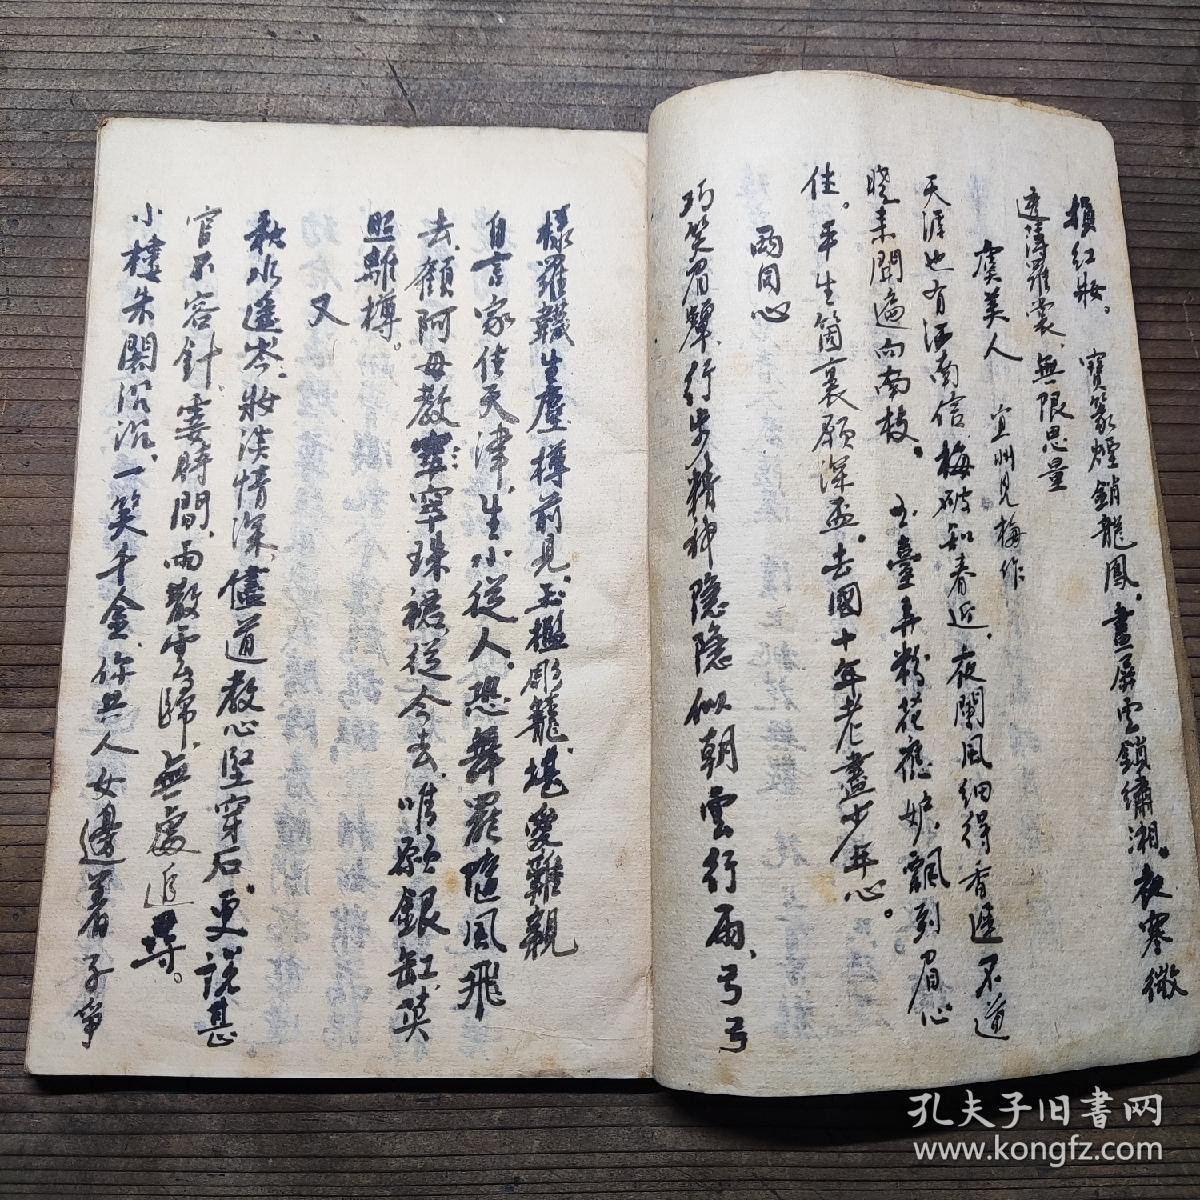 損紅妝。 寶篆煙銷龍鳳,畫屏雲鎖瀟湘。夜寒微
透薄羅裳,無限思量
虞美人 宜州見梅作
天涯也有江南信,梅破知春近,夜闌風細得香遲,不道
曉來開遍向南枝。 玉臺弄粉花應妒,飄到眉心
住。平生箇裏願深盃,去國十年老盡少年心。
兩同心
巧笑眉顰,行步精神,隱隱似朝雲行雨,弓弓
樣羅韈生塵,樽前見,玉檻彫籠,堪愛難親
自言家住天津,生小從人,恐舞罷隨風飛
去,顧阿母教窣珠裙,從今去,唯願銀缸,莫
照離樽。
又
秋水遙岑,妝淡情深,儘道教心堅穿石,更說甚
官不容針,霎時間,雨散雲歸,無處追尋。
小樓朱閣沉沉,一笑千金,你共人女邊著子,爭
孔夫子旧書网
www.kongfz.com